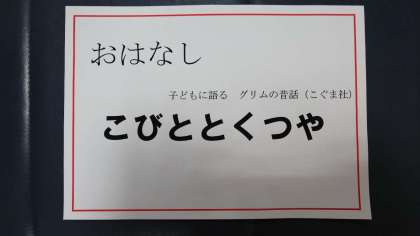 おはなし
子どもに語る　グリムの昔話（こぐま社）
こびととくつや